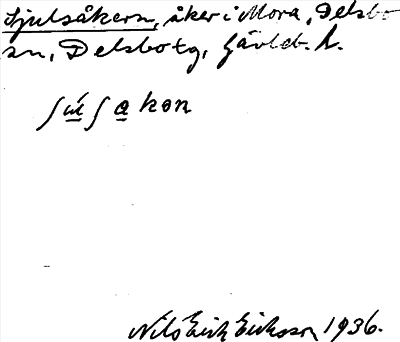 Hjulsåkern, åker i Mora, Delsbo
sn, Delsbo tg, Gävleb. l.
ʃu̲ʃa̲kon
Nils Erik Eriksson 1936.